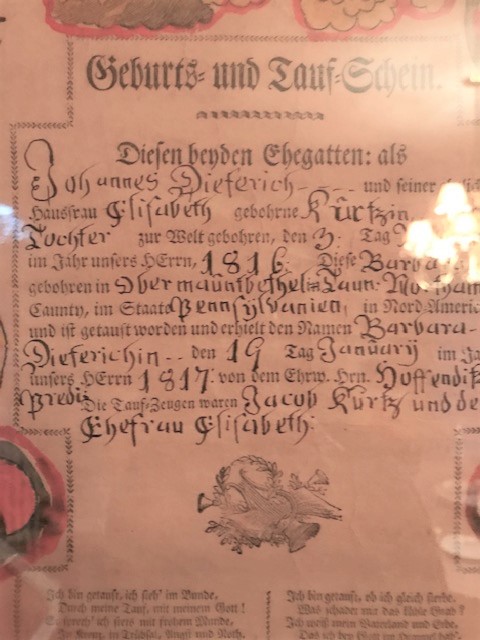 Geburts- und Tauf-Schein.
Diesen beyden Ehegatten: als
Johannes Dieferich- - - - und seiner
Hausfrau Elisabeth gebohrne Kürtzin,
Tochter zur Welt gebohren, den 3: Tag
im Jahr unsers HErrn, 1816. Diese
gebohren in Obermauntbethel Taun:
Caunty, im Staate Pennsylvanien, in Nord
und ist getauft worden und erhielt den Namen Barbara-
Dieferichin - - den 19 Tag Januarij im
unsers HErrn 1817. von dem Ehrw. Hrn.
Predig Die Tauf-Zeugen waren Jacob Kurtz und
Ehefrau Elisabeth:
Ich bin getauft, ich steh' im Bunde,
Durch meine Tauf, mit meinem Gott!
So sprech' ich stets mit frohem Munde,
In Kreuz, in Trübsal, Angst und Noth.
Ich bin getauft, ob ich gleich sterbe,
Was schadet mir das kühle Grab?
Ich weiß mein Vaterland und Erbe,